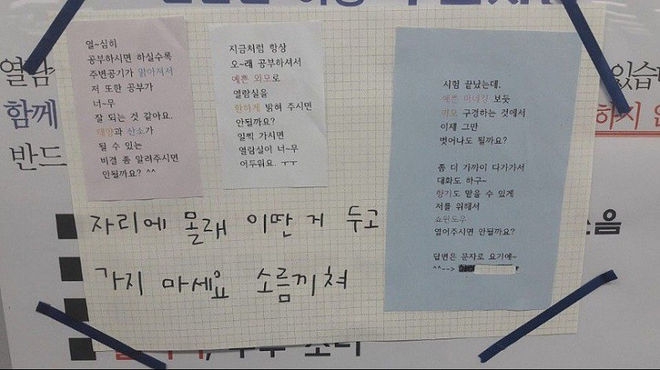 열~심히
공부하시면 하실수록
주변공기가 맑아져서
저 또한 공부가
너~무
잘 되는 것 같아요.
태양과 산소가
될 수 있는
비결 좀 알려주시면
안될까요? ^^
지금처럼 항상
오~래 공부하셔서
예쁜 외모로
열람실을
환하게 밝혀 주시면
안될까요?
일찍 가시면
열람실이 너~무
어두워요. ㅜㅜ
시험 끝났는데,
예쁜 마네킹 보듯
외모 구경하는 것에서
이제 그만
벗어나도 될까요?
좀 더 가까이 다가가서
대화도 하구~
향기도 맡을 수 있게
저를 위해서
쇼윈도우
열어주시면 안될까요?
답변은 문자로 요기에~
^^-->
자리에 몰래 이딴 거 두고
가지 마세요 소름끼쳐
열람
있습
함께
하지
반드
음
소리